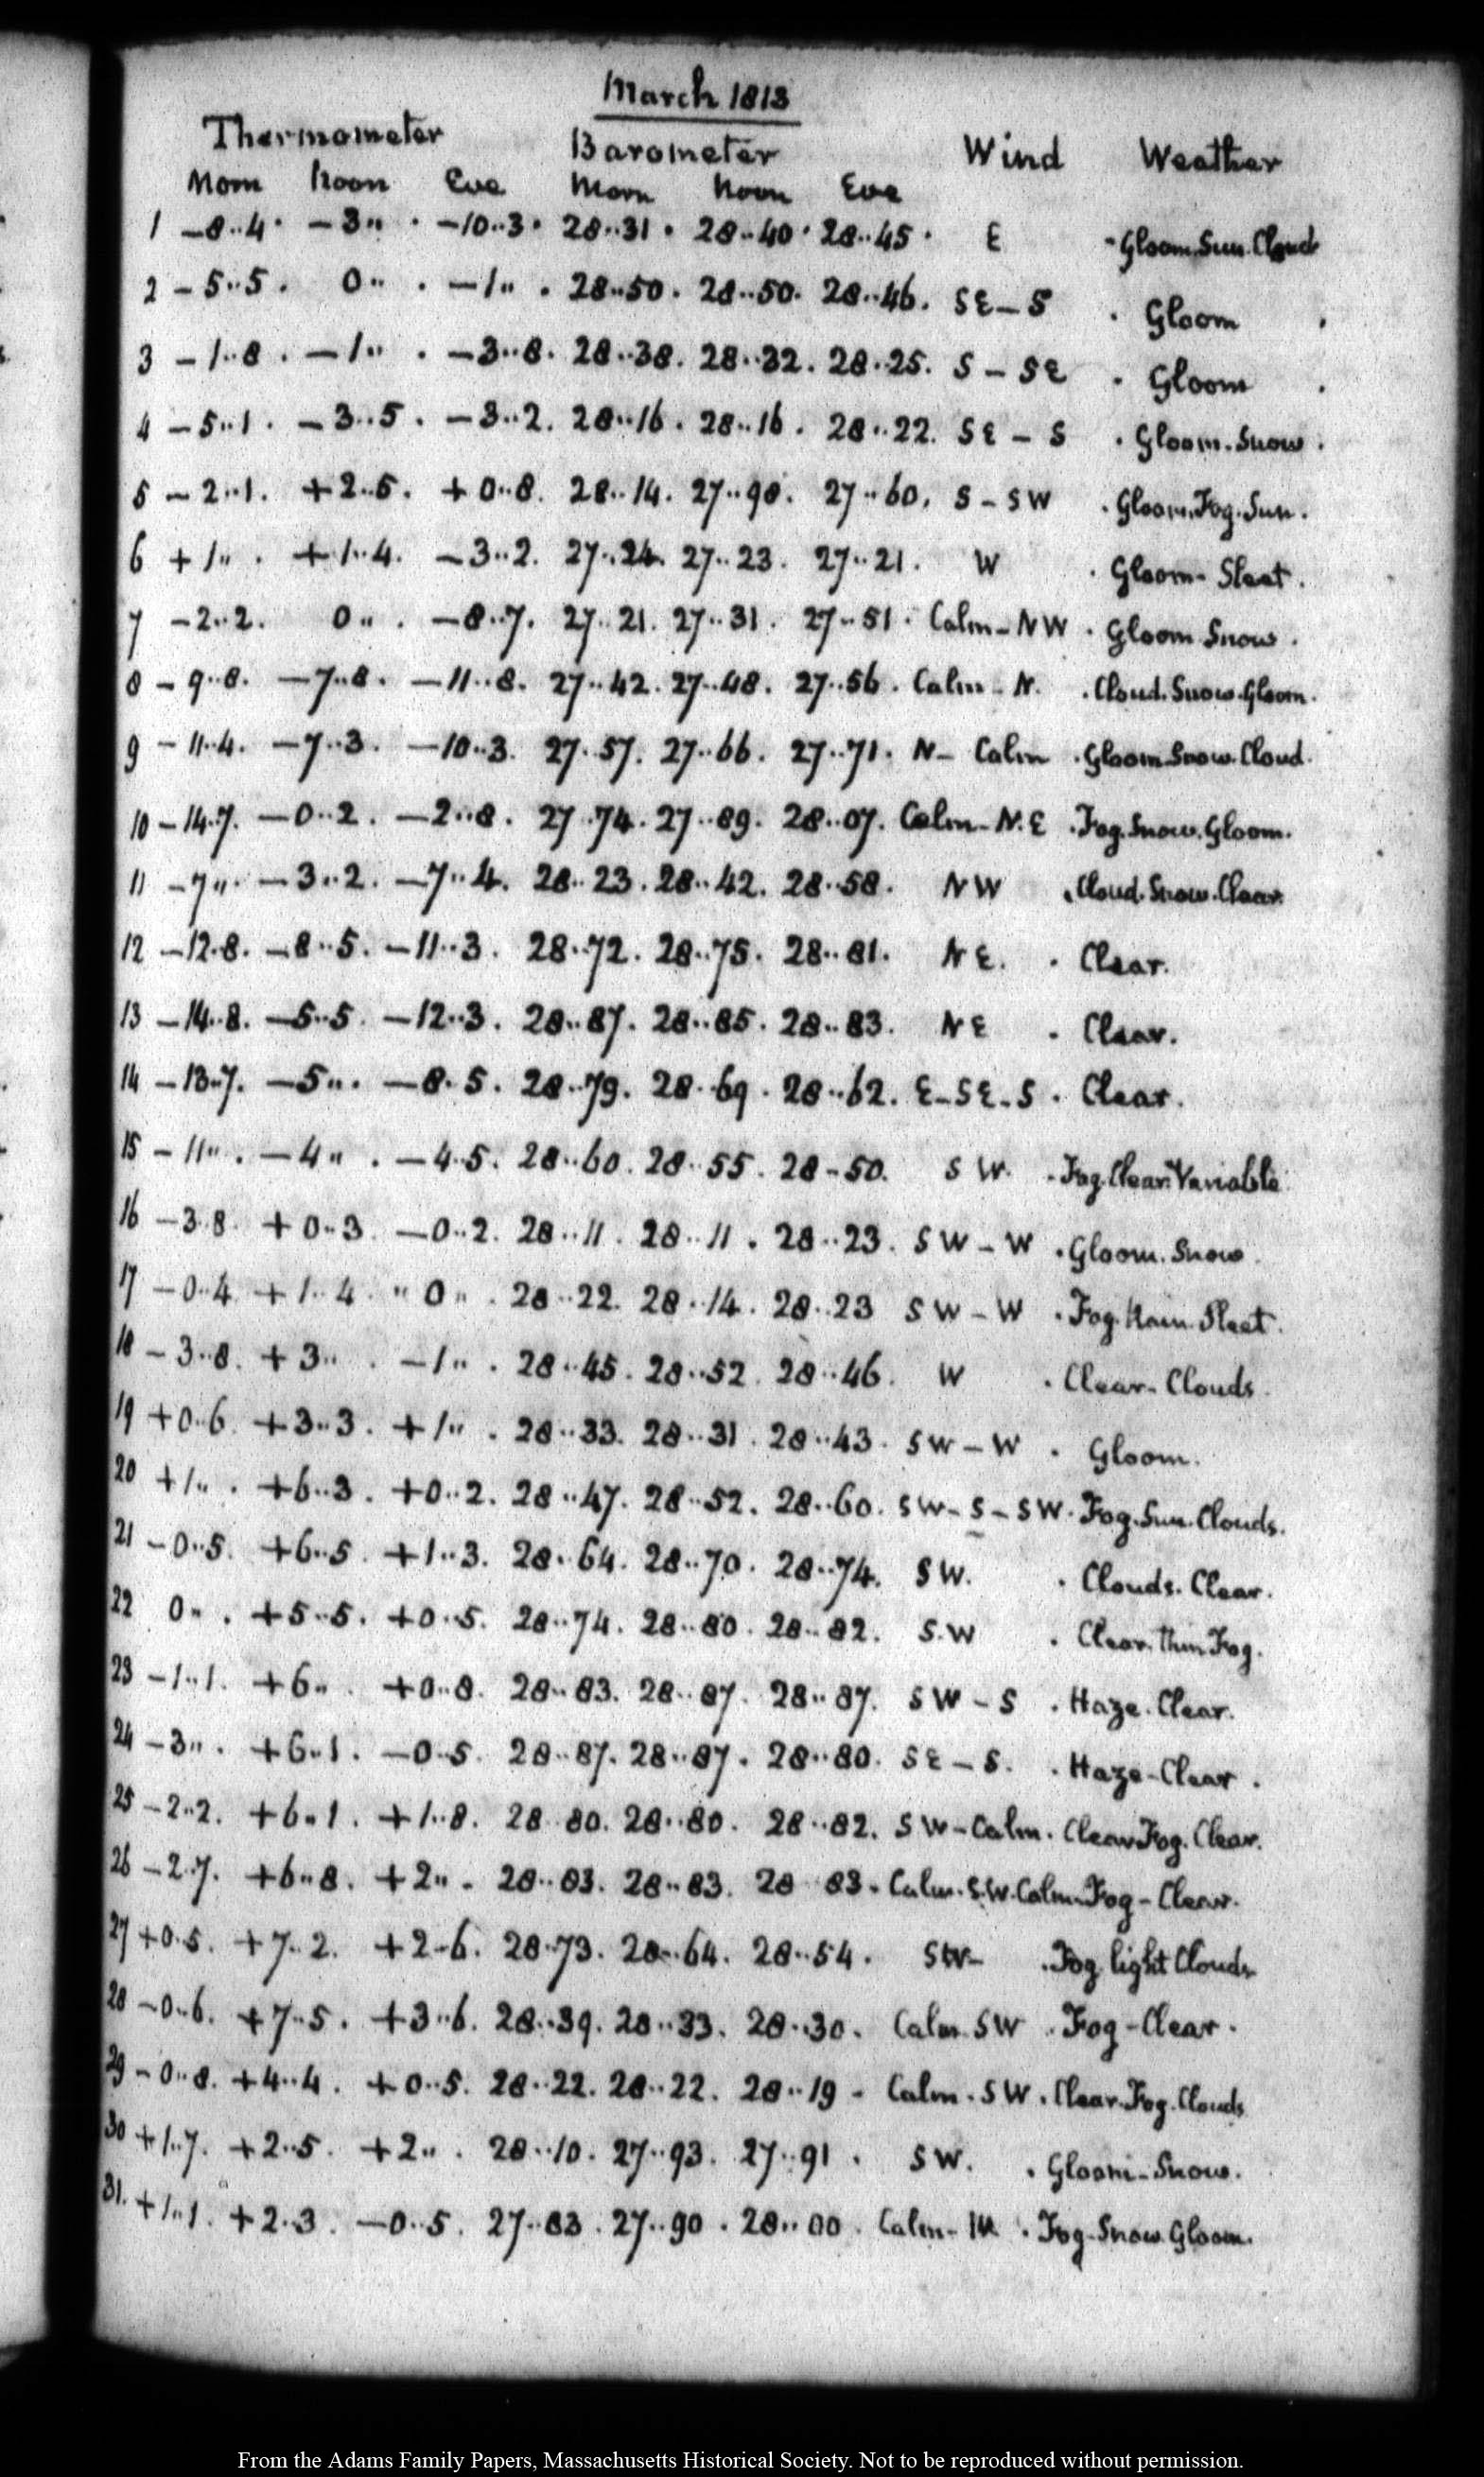 March 1813
Thermometer Barometer Wind Weather
Morn Noon Eve Morn Noon Eve
1 -8..4. -3.. . -10..3. 28..31. 28..40. 28..45. E - Gloom. Sun. Cloud
2 -5..5. 0.. . -1.. . 28..50. 28..50. 28..46. SE-S . Gloom .
3 -1..8. -1.. . -3..8. 28..38. 28..32. 28..25. S-SE . Gloom .
4 -5..1. -3..5. -3..2. 28..16. 28..16. 28..22. SE-S . Gloom. Snow.
5 -2..1. +2..5. +0..8. 28..14. 27..90. 27..60. S-SW . Gloom. Fog. Sun.
6 +1.. . +1..4. -3..2. 27..24. 27..23. 27..21. W . Gloom- Sleet.
7 -2..2. 0.. . -8..7. 27..21. 27..31. 27..51. Calm-NW . Gloom Snow.
8 -9..8. -7..8. -11..8. 27..42. 27..48. 27..56. Calm-N. . Cloud. Snow. Gloom.
9 -11..4. -7..3. -10..3. 27..57. 27..66. 27..71. N-Calm . Gloom Snow. Cloud.
10 -14..7. -0..2. -2..8. 27..74. 27..89. 28..07. Calm-N.E . Fog. Snow. Gloom.
11 -7.. . -3..2. -7..4. 28..23. 28..42. 28..58. NW . Cloud. Snow. Clear.
12 -12..8. -8..5. -11..3. 28..72. 28..75. 28..81. NE. . Clear.
13 -14..8. -5..5. -12..3. 28..87. 28..85. 28..83. NE . Clear.
14 -13..7. -5.. . -8..5. 28..79. 28..69. 28..62. E-SE-S . Clear.
15 -11.. . -4.. . -4..5. 28..60. 28..55. 28-50. SW. . Fog. Clear. Variable
16 -3..8. +0..3. -0..2. 28..11. 28..11. 28..23. SW-W . Gloom. Snow.
17 -0..4. +1..4. " 0.. . 28..22. 28..14. 28..23 SW-W . Fog. Rain. Sleet.
18 -3..8. +3.. . -1.. . 28..45. 28..52. 28..46. W . Clear- Clouds.
19 +0..6. +3..3. +1.. . 28..33. 28..31. 28..43. SW-W . Gloom.
20 +1.. . +6..3. +0..2. 28..47. 28..52. 28..60. SW-S-SW. Fog. Sun. Clouds.
21 -0..5. +6..5. +1..3. 28..64. 28..70. 28..74. SW. . Clouds. Clear.
22 0.. . +5..5. +0..5. 28..74. 28..80. 28..82. S.W . Clear. thin Fog.
23 -1..1. +6.. . +0..8. 28..83. 28..87. 28..87. SW-S . Haze. Clear.
24 -3.. . +6..1. -0..5. 28..87. 28..87. 28..80. SE-S. . Haze-Clear.
25 -2..2. +6..1. +1..8. 28 80. 28..80. 28..82. SW-Calm. Clear Fog. Clear.
26 -2..7. +6..8. +2.. . 28..83. 28..83. 28 83. Calm. S.W. Calm. Fog-Clear.
27 +0..5. +7..2. +2..6. 28..73. 28..64. 28..54. SW- . Fog light Clouds
28 -0..6. +7..5. +3..6. 28..39. 28..33. 28..30. Calm. SW . Fog-Clear.
29 -0..8. +4..4. +0..5. 28..22. 28..22. 28..19- Calm. SW. Clear. Fog. Clouds
30 +1..7. +2..5. +2.. . 28..10. 27..93. 27..91. SW. . Gloom-Snow.
31. +1..1. +2..3. -0..5. 27..83. 27..90. 28..00. Calm- . Fog-Snow. Gloom.
From the Adams Family Papers, Massachusetts Historical Society. Not to be reproduced without permission.